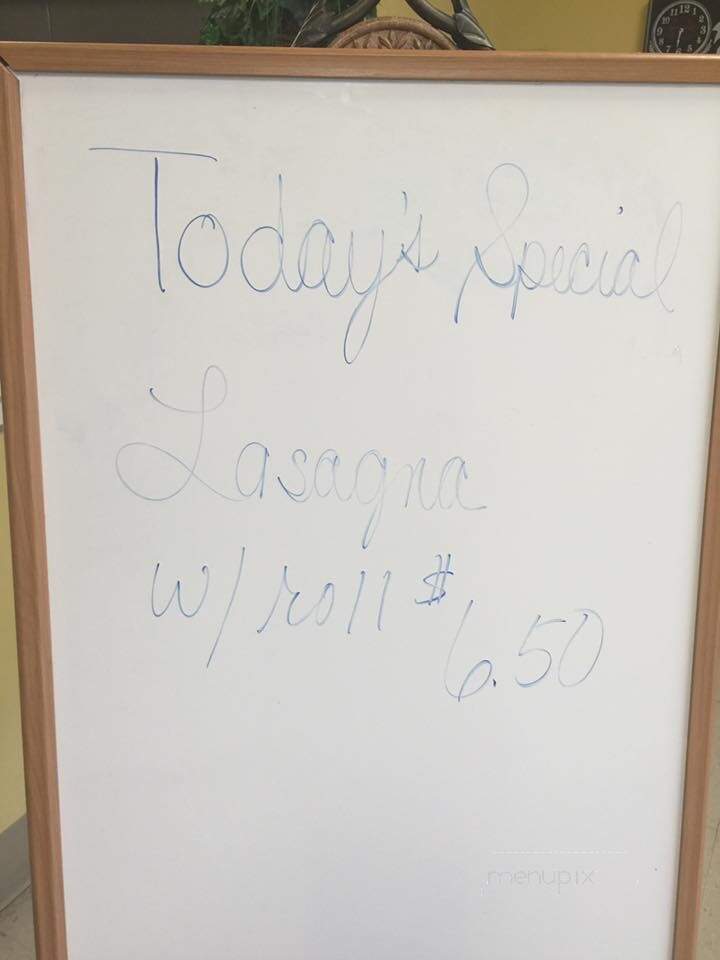 Today's Special
Lasagna
w/ roll $
6.50
menupix